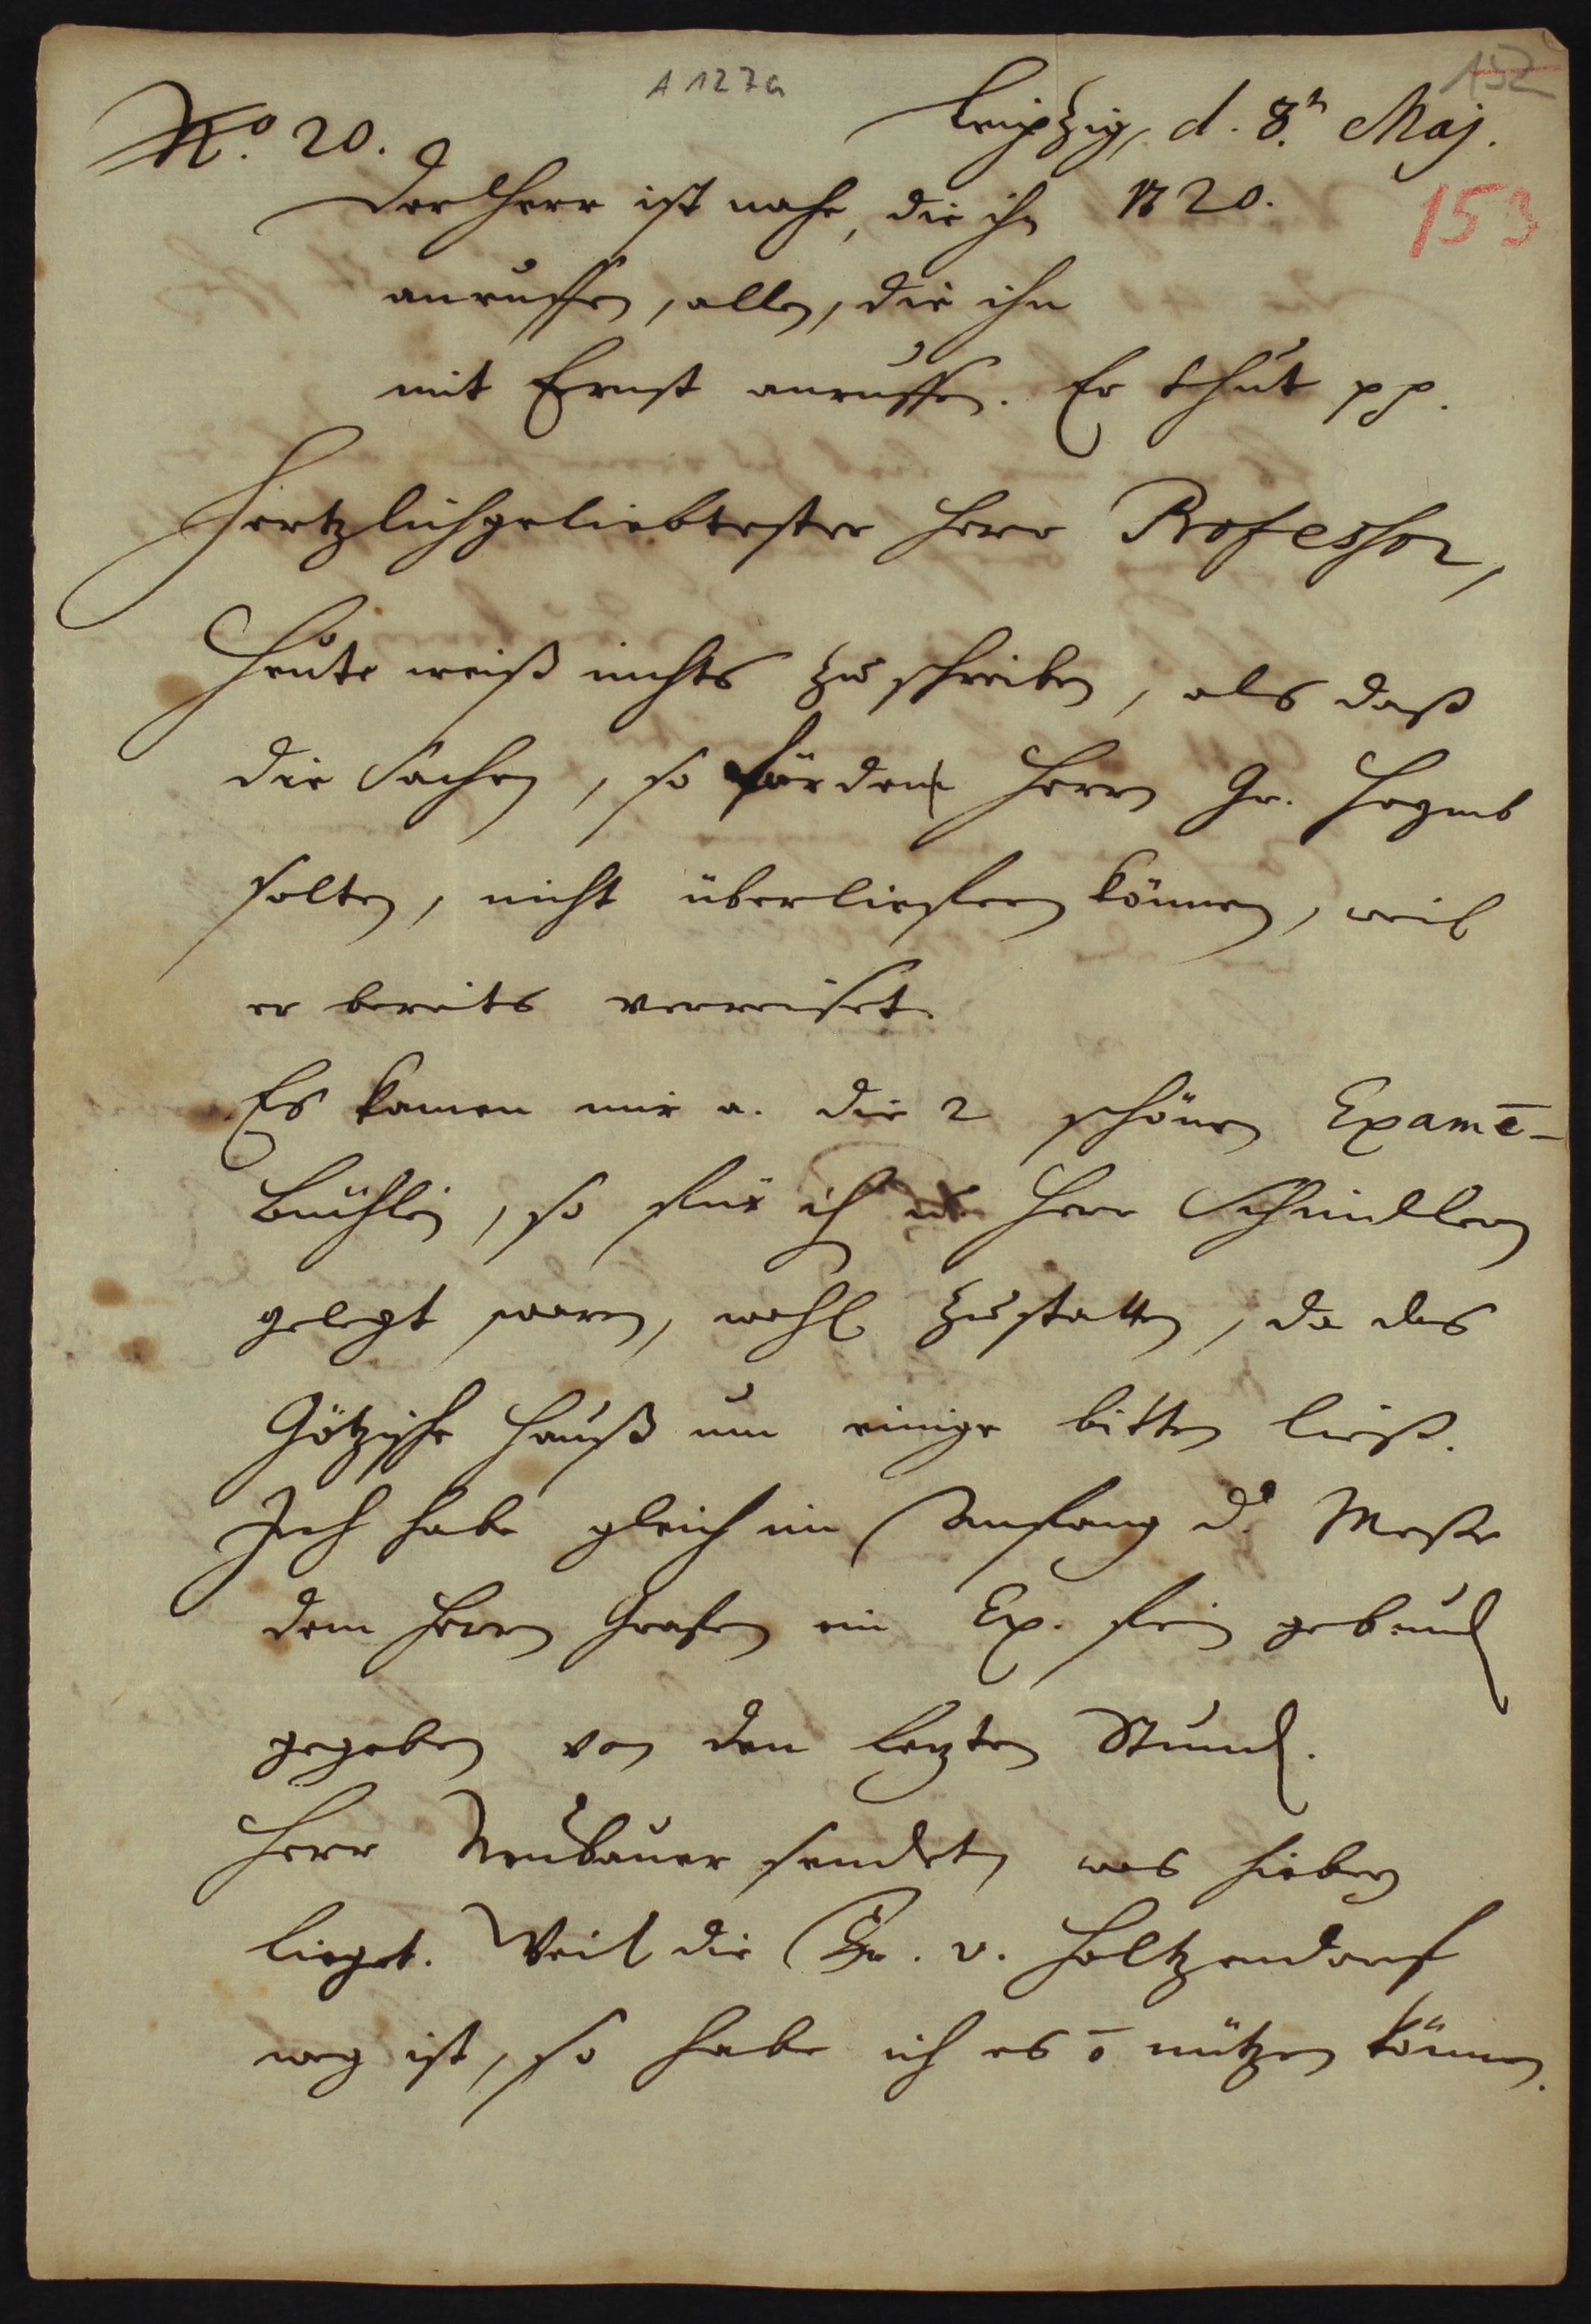 A 127a
152
No. 20.
Leipzig, d. 8.n Maj.
Der Herr ist nahe, die ihn 1720.
153
anruffen, allen, die ihn
mit Ernst anruffen. Er thut pp.
Hertzlichgeliebtester Herr Professor,
Heute weiß nichts zu schreiben, als daß
die Sachen, so für den Herrn Gr. Hennb
solten, nicht überlieffern können, weil
er bereits verreiset.
Es kamen mir a. die 2 schönen Examē-
Büchlein, so für ich Herr Schindlern
gelegt waren, wohl zustatten, da das
Götzische Hauß um einige bitten ließ.
Ich habe gleich im Anfang d. Messe
dem Herrn Grafen ein Ex. fein gebund
gegeben von den letzten Stund.
Herr Neubauer sendet, was hiebey
lieget. Weil die Fr. v. Holtzendorf
weg ist, so habe ich es ō nützen können.